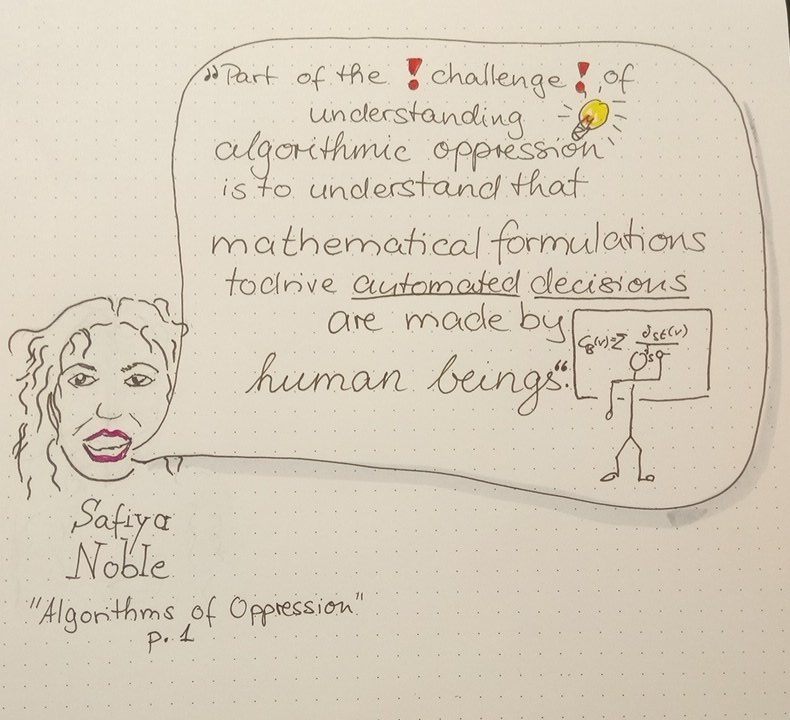 „Part of the ! challenge ! of
understanding
algorithmic oppression
is to understand that
mathematical formulations
to drive automated decisions
are made by
human beings“.
Safiya
Noble
"Algorithms of Oppression"
p. 1